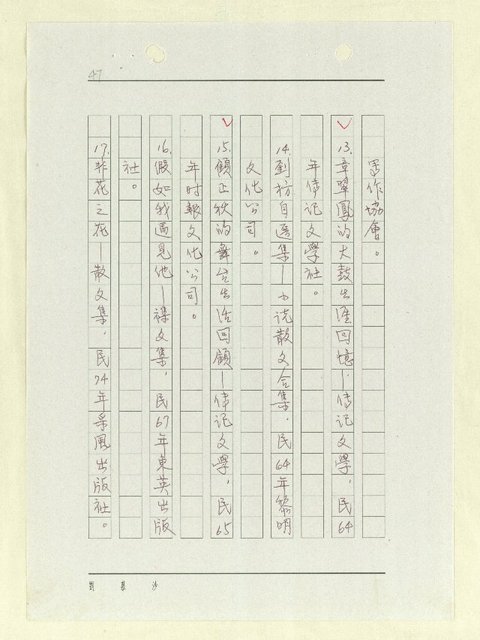 47
寫作協會。
13.章翠鳳的大鼓生涯回憶—傳記文學,民64
年傳記文學社。
14.劉枋自選集—小說散文合集,民64年黎明
文化公司。
15.顧正秋的舞台生活回顧—傳記文學,民65
年時報文化公司。
16.假如我遇見他—襍文集,民67年東英出版
社。
17.非花之花—散文集,民74年采風出版社。